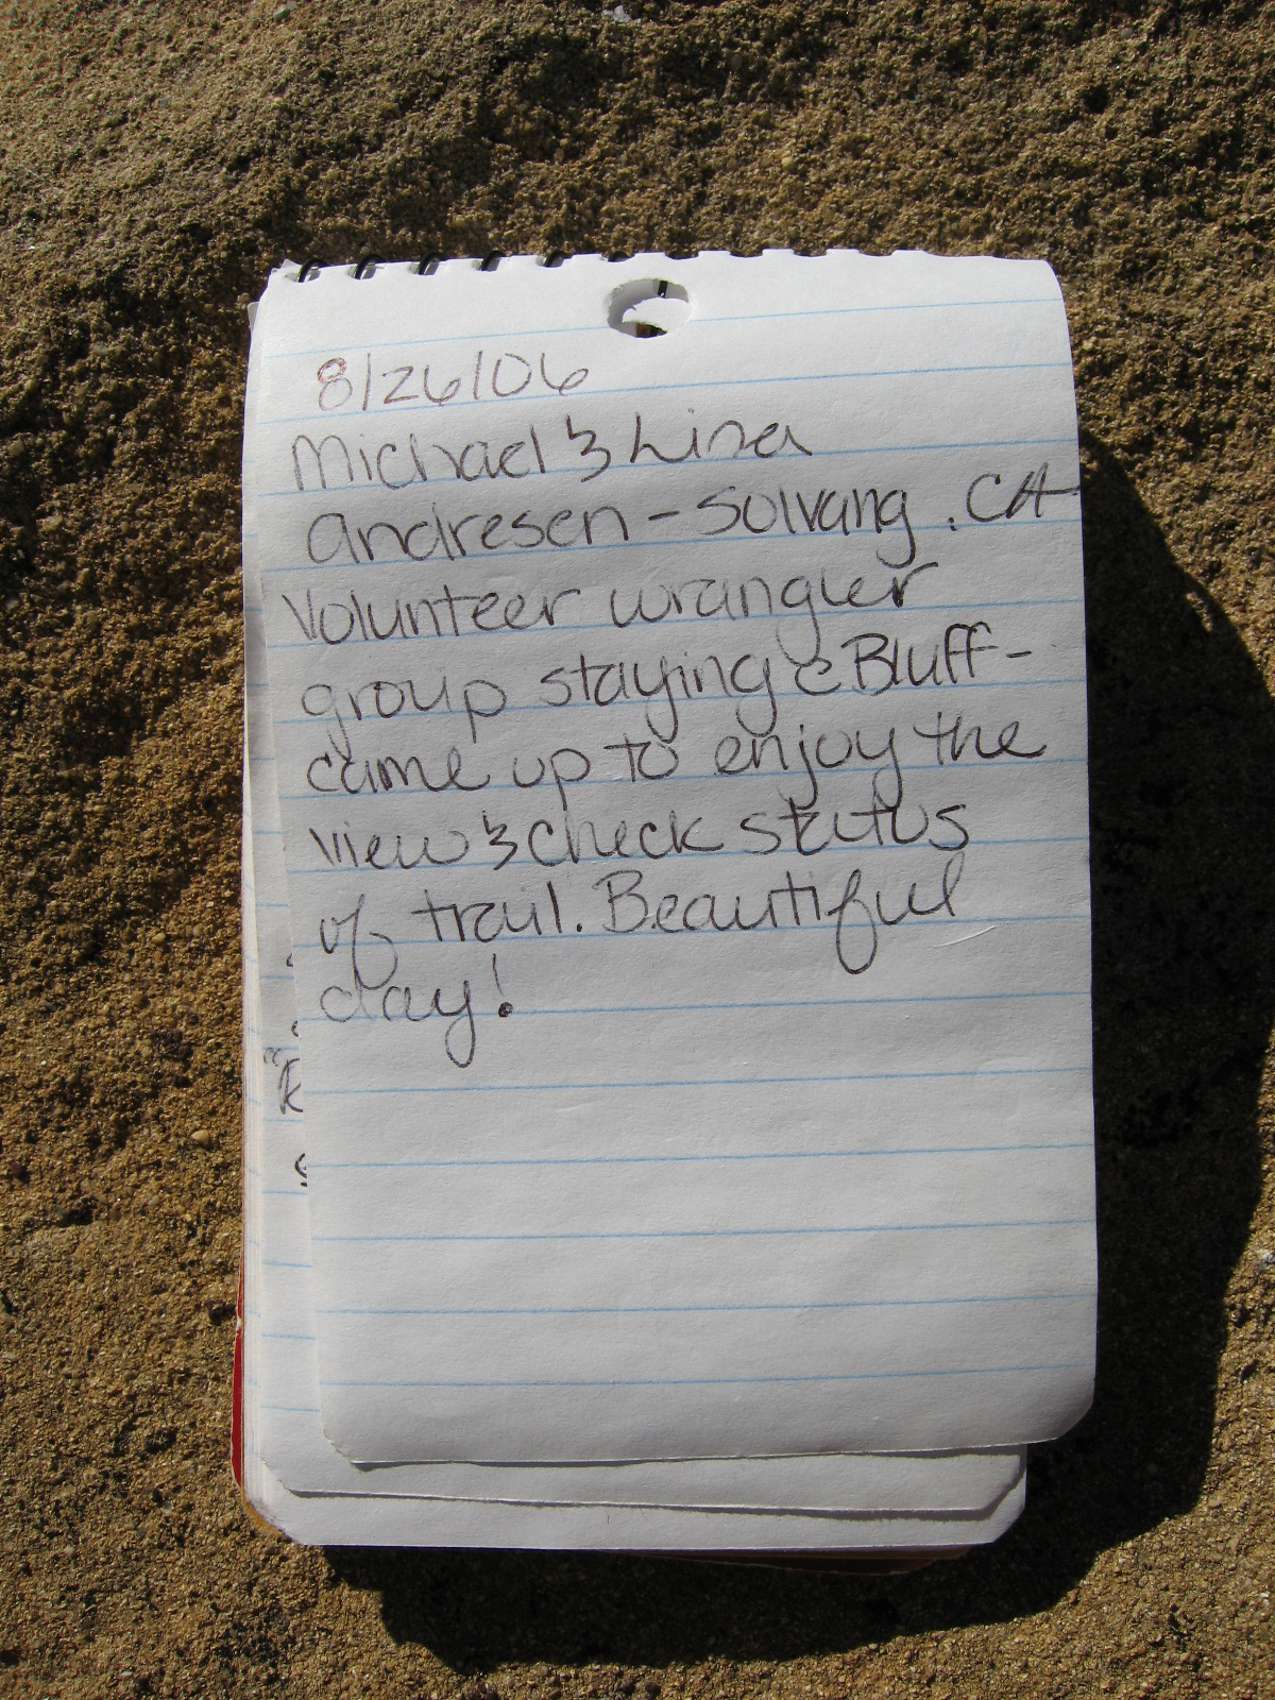 8/26/06
Michael & Lisa
Andresen - Solvang, CA
Volunteer wrangler
group staying @ Bluff -
came up to enjoy the
view & check status
of trail. Beautiful
day!